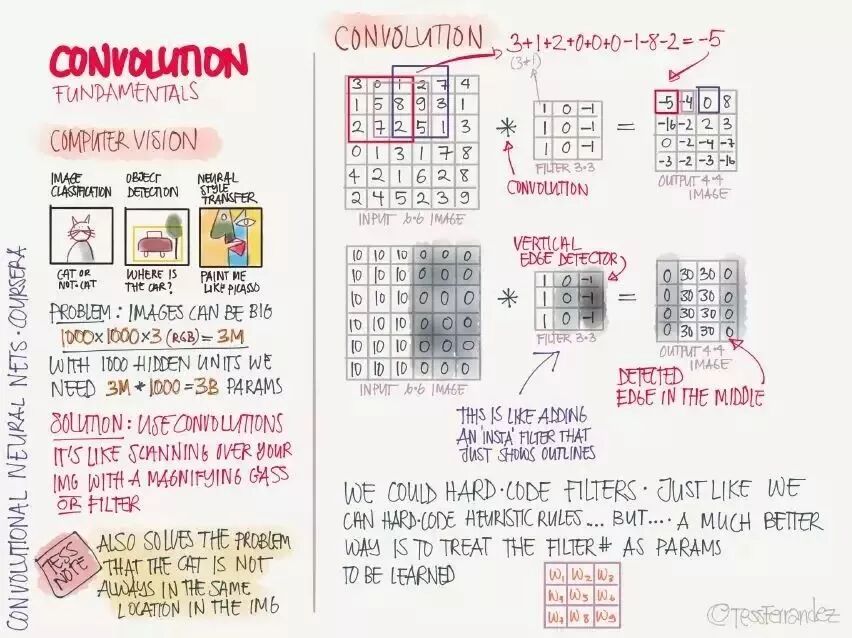 CONVOLUTIONAL NEURAL NETS · COURSERA
CONVOLUTION
FUNDAMENTALS
COMPUTER VISION
IMAGE CLASSIFICATION
OBJECT DETECTION
NEURAL STYLE TRANSFER
CAT OR NOT-CAT
WHERE IS THE CAR?
PAINT ME LIKE PICASSO
PROBLEM: IMAGES CAN BE BIG
1000×1000×3 (RGB) = 3M
WITH 1000 HIDDEN UNITS WE
NEED 3M * 1000 = 3B PARAMS
SOLUTION: USE CONVOLUTIONS
IT'S LIKE SCANNING OVER YOUR
IMG WITH A MAGNIFYING GASS
OR FILTER
TESS NOTE
ALSO SOLVES THE PROBLEM
THAT THE CAT IS NOT
ALWAYS IN THE SAME
LOCATION IN THE IMG
CONVOLUTION
3+1+2+0+0+0-1-8-2=-5
(3*1)
3 0 1 2 7 4
1 5 8 9 3 1
2 7 2 5 1 3
0 1 3 1 7 8
4 2 1 6 2 8
2 4 5 2 3 9
INPUT 6·6 IMAGE
*
CONVOLUTION
1 0 -1
1 0 -1
1 0 -1
FILTER 3·3
=
-5 -4 0 8
-10 -2 2 3
0 -2 -4 -7
-3 -2 -3 -16
OUTPUT 4·4
IMAGE
10 10 10 0 0 0
10 10 10 0 0 0
10 10 10 0 0 0
10 10 10 0 0 0
10 10 10 0 0 0
10 10 10 0 0 0
INPUT 6·6 IMAGE
*
VERTICAL
EDGE DETECTOR
1 0 -1
1 0 -1
1 0 -1
FILTER 3·3
=
0 30 30 0
0 30 30 0
0 30 30 0
0 30 30 0
OUTPUT 4·4
IMAGE
THIS IS LIKE ADDING
AN 'INSTA' FILTER THAT
JUST SHOWS OUTLINES
DETECTED
EDGE IN THE MIDDLE
WE COULD HARD-CODE FILTERS · JUST LIKE WE
CAN HARD-CODE HEURISTIC RULES... BUT.... A MUCH BETTER
WAY IS TO TREAT THE FILTER # AS PARAMS
TO BE LEARNED
W1 W2 W3
W4 W5 W6
W7 W8 W9
©TessFerrandez